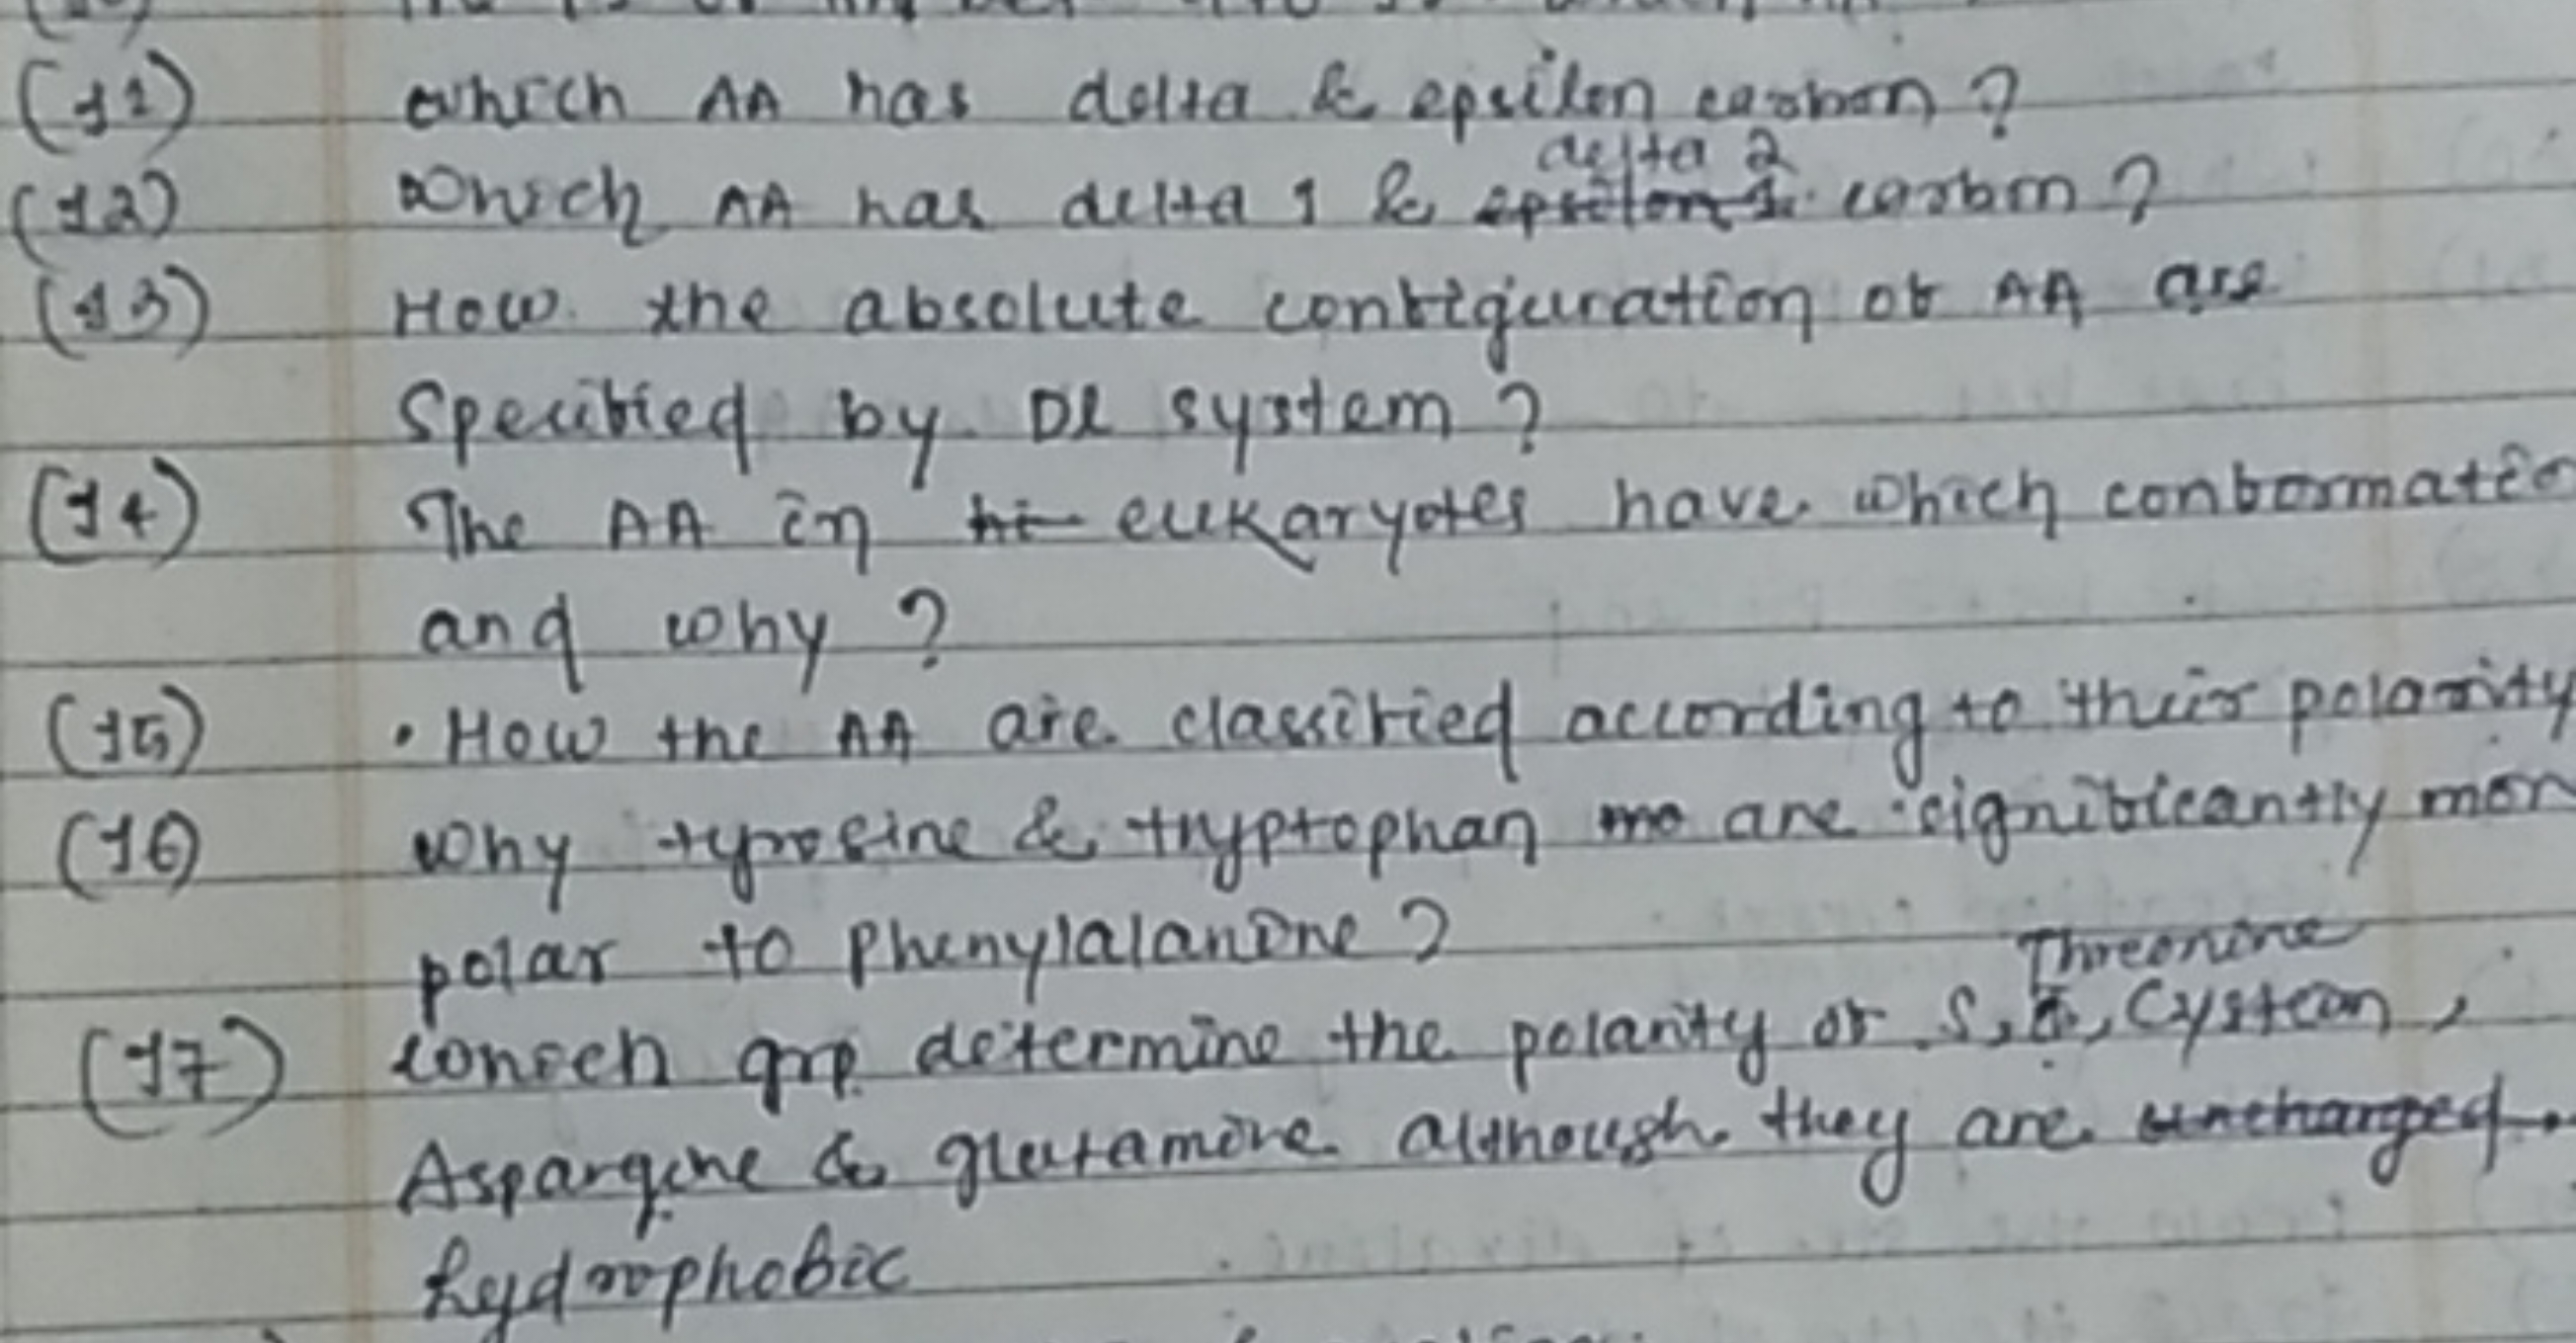 (11) which AA has delta & epsilon carbon ?
delta 2
(12) Which AA has delta 1 & epsilon 1 carbon ?
(13) How the absolute configuration of AA are
Specified by Dl system ?
(14) The AA in hi eukaryotes have which conformatio
and why ?
(15) • How the AA are classified according to their polarity
(16) why tyrosine & tryptophan mo are significantly mor
polar to phenylalanine ?
Threonine
(17) which grp determine the polarity of S, , Cystein ,
Aspargine & glutamine although they are uncharged.
hydrophobic